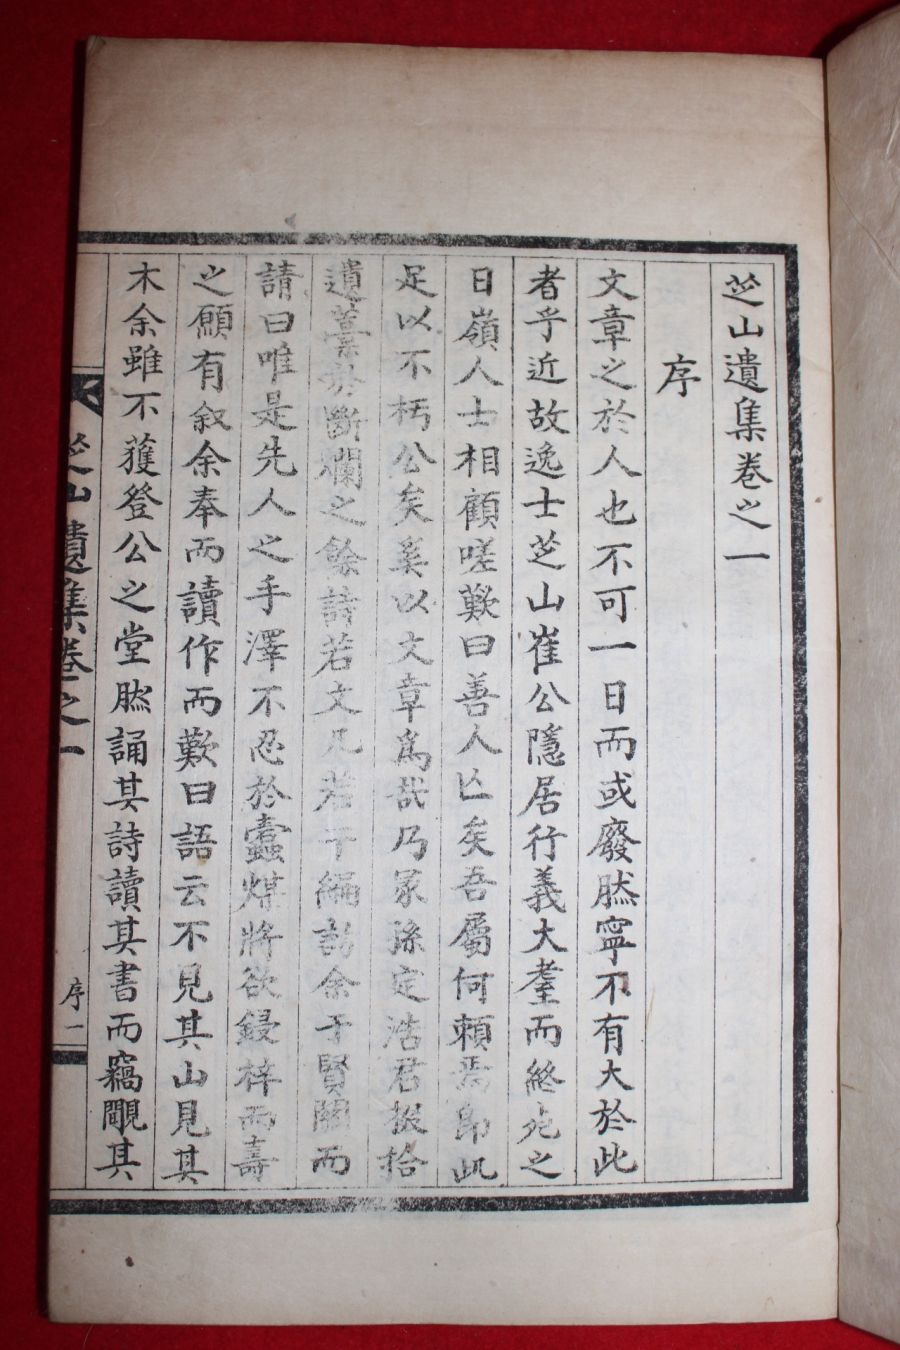 芝山遺集卷之一
序
文章之於人也不可一日而或廢然寧不有大於此
者乎近故逸士芝山崔公隱居行義大耋而終死之
日嶺人士相顧嗟歎曰善人亡矣吾屬何賴焉即此
足以不朽公矣奚以文章爲哉乃冢孫定浩君掇拾
遺藁於斷爛之餘詩若文凡若干編訪余于賢關而
請曰唯是先人之手澤不忍於蠹煤將欲鋟梓而壽
之願有叙余奉而讀作而歎曰語云不見其山見其
木余雖不獲登公之堂然誦其詩讀其書而竊覸其
芝山遺集卷之一
序一